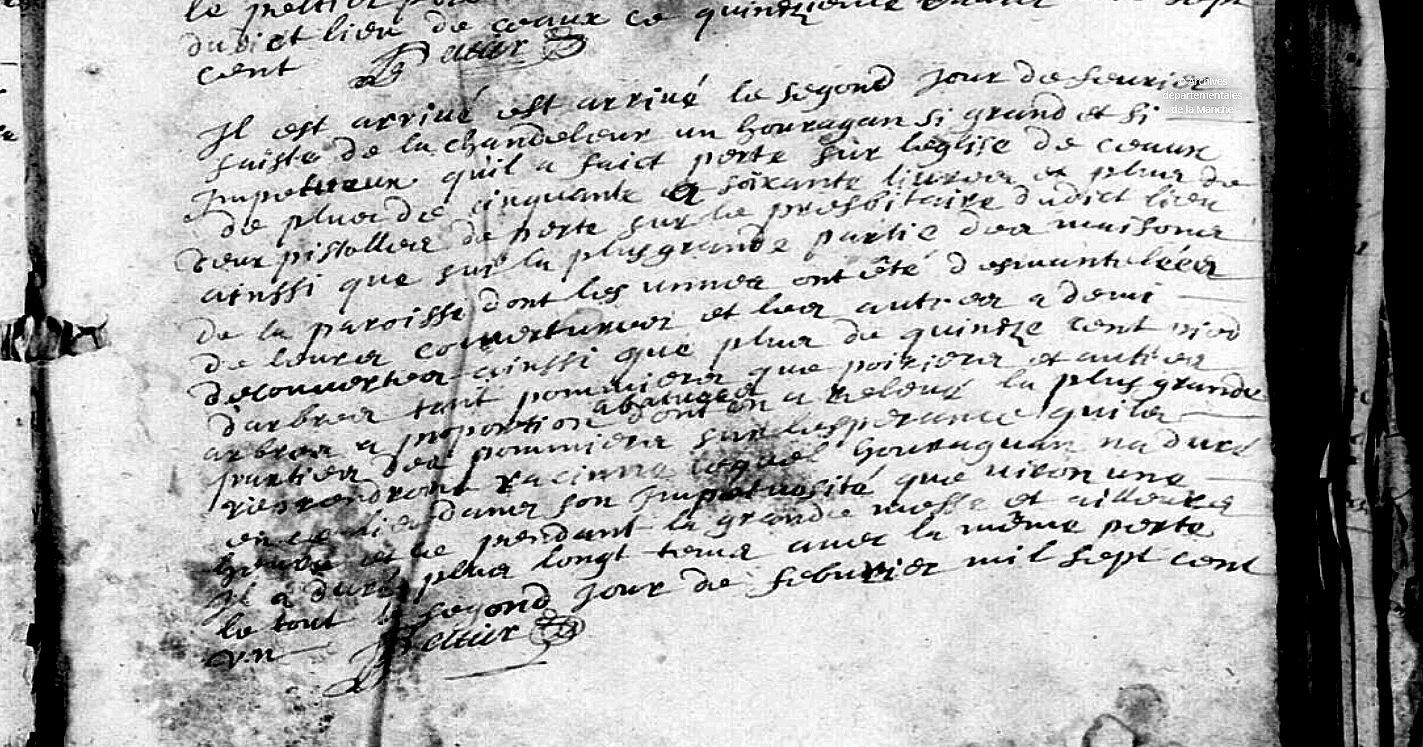 le peltier
dudict lieu de ceaux ce quindzieme sept
cent Peltier
© Archives
départementales
de la Manche
Il est arrivé est arrivé le segond jour de feurier
faiste de la chandeleur un houragan si grand et si
Impetueux qu'il a faict perte sur leglise de ceaux
de plus de cinquante a soixante liures et plus de
deux pistolles de perte sur le presbitaire dudict lieu
ainssi que sur la plus grande partie des maisons
de la paroisse dont les unnes ont été desmantelées
de leurs couvertures et les autres a demi
decouvertes ainssi que plus de quindze cent pied
d'arbres tant pommiers que poiriers et autres
arbres a proportion abatues dont on a relevé la plus grande
parties des pommiers sur lesperance quils
reprendront racinne lequel houraguan na duré
en ce lieu dans son Impetuosité que uiron une
heure et ce pendant la grande messe et ailleurs
Il a duré plus longt tems avec la même perte
le tout le segond jour de feburier mil sept cent
vn Peltier